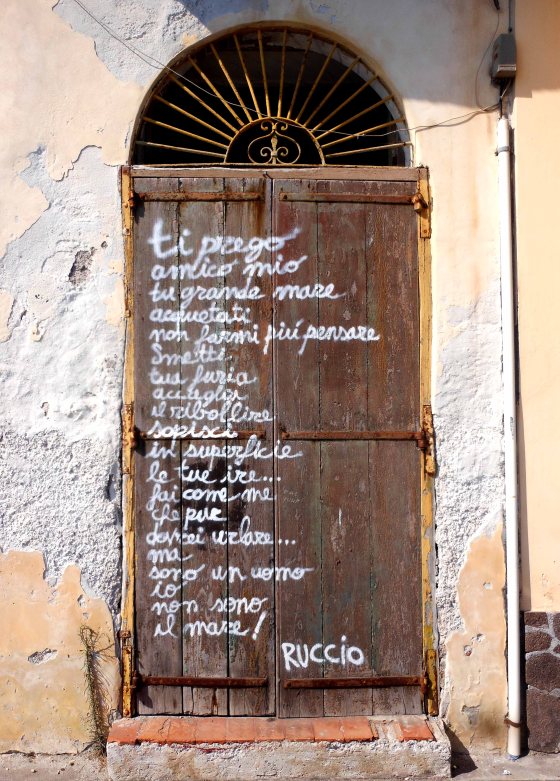 ti prego
amico mio
tu grande mare
acquetati
non farmi piú pensare
Smetti
tua furia
accogli
il ribollire
sopisci
in superficie
le tue ire...
fai come me
che pur
dovrei urlare...
ma
sono un uomo
io
non sono
il mare!
RUCCIO